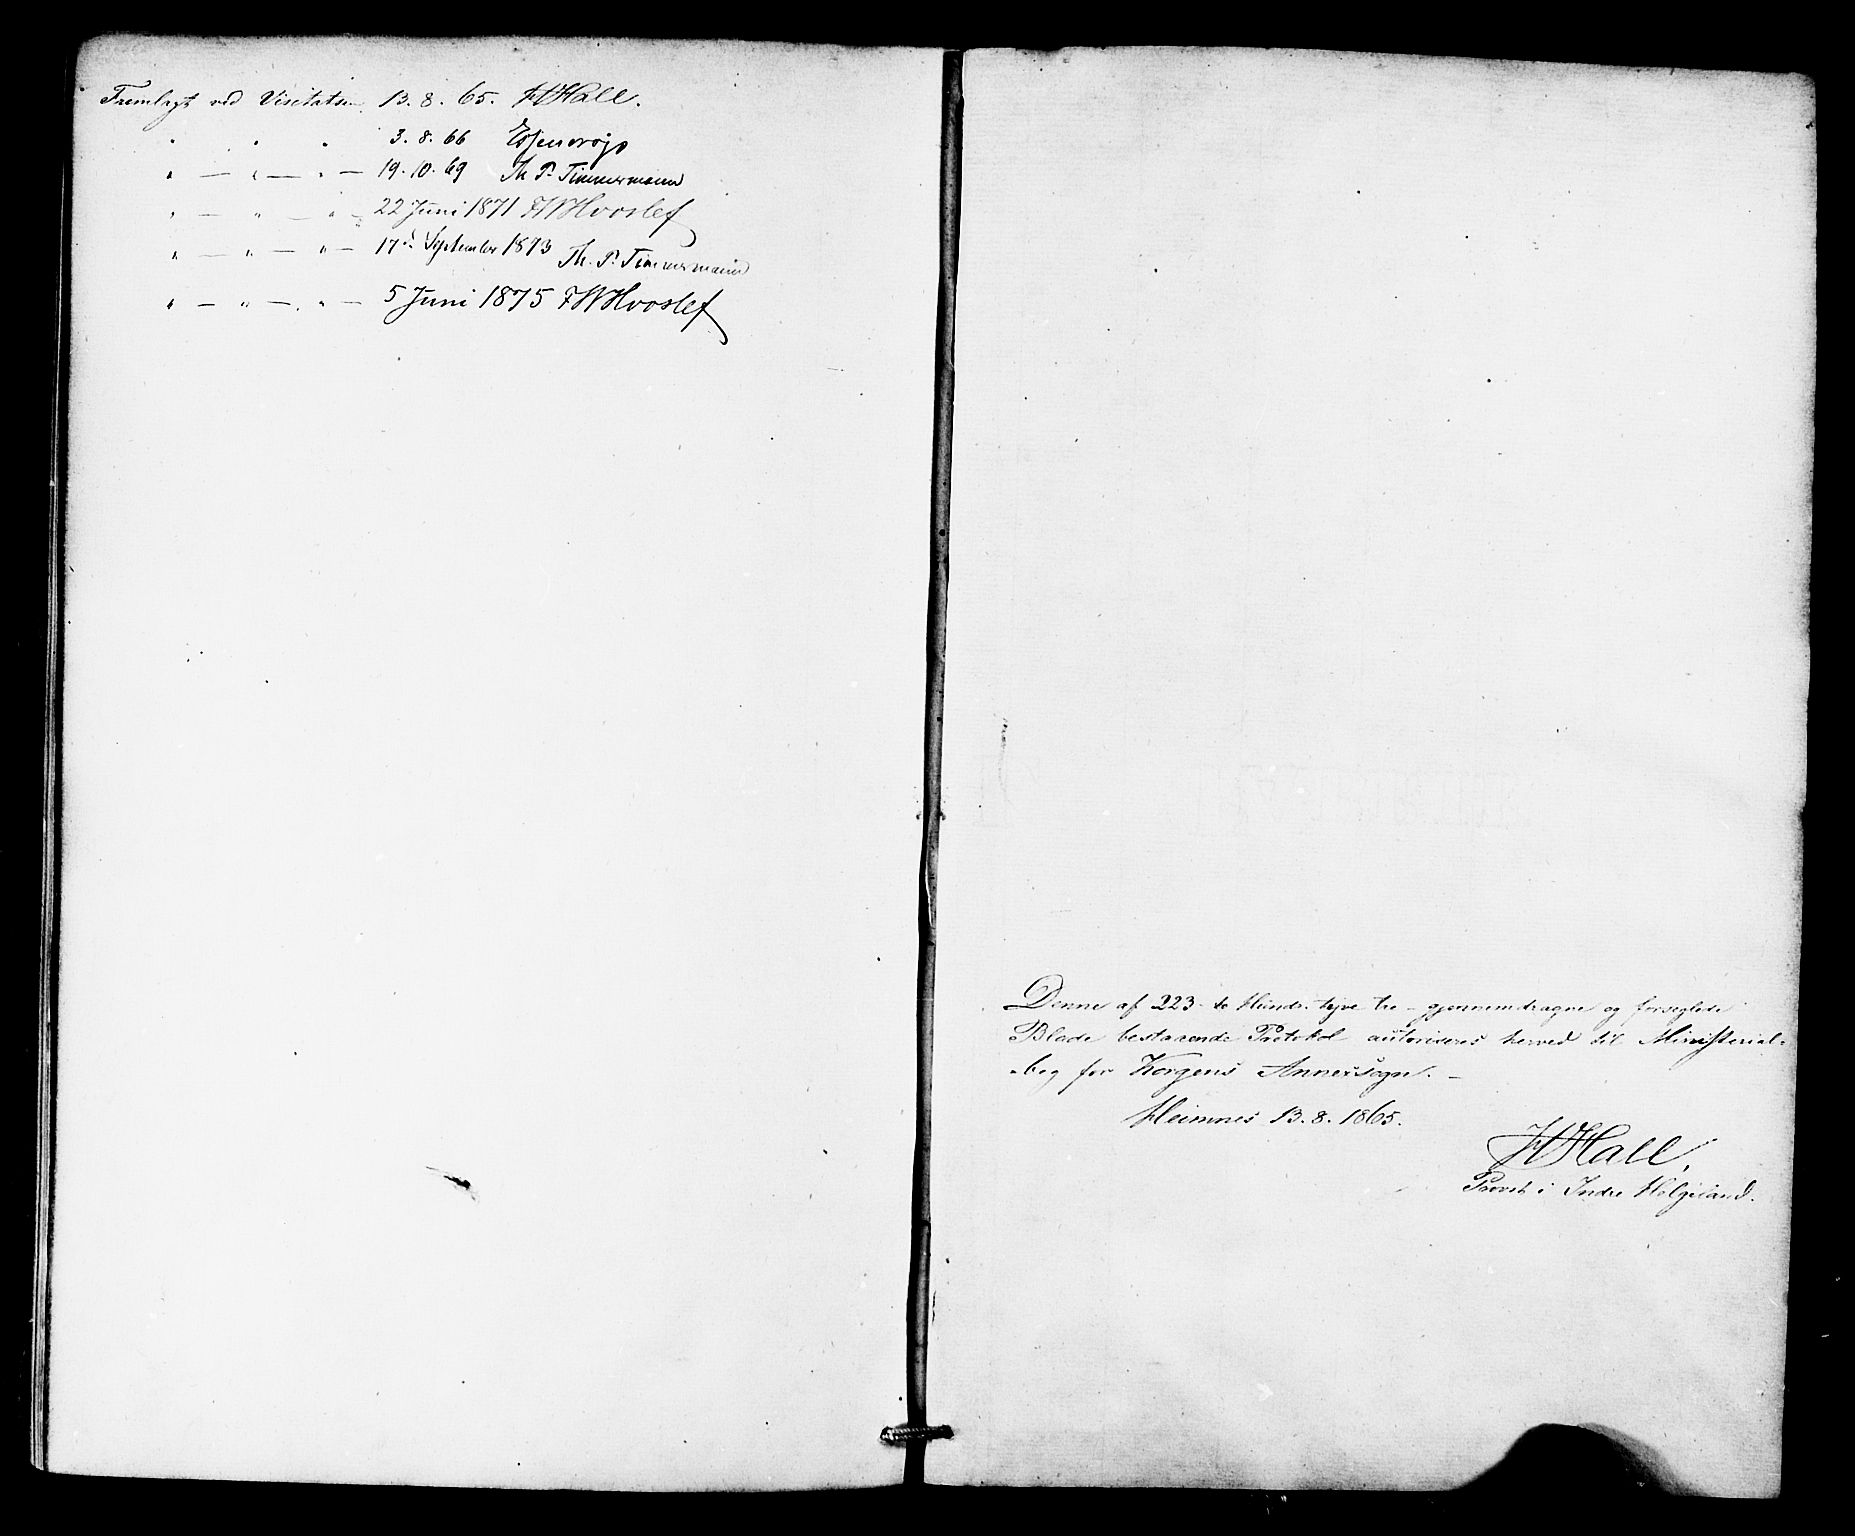 Fremlagt ved Visitatsen 13. 8. 65. FWHall.
" " " 3. 8. 66 Essendrop
" — " — " — 19. 10. 69 Th P. Timmermann
" — " — " — 22 Juni 1871 FWHvoslef
" — " — " — 17d September 1873 Th. P. Timmermann
" — " — " — 5 Juni 1875 FWHvoslef
Denne af 223 - to Hundr. tyve tre - gjennemdragne og forseglede
Blade bestaaende Protokol autoriseres herved til Ministerial-
-bog for Korgens Annexsogn. —
Hemnes 13. 8. 1865.
FWHall.
Provst i Indre Helgeland.